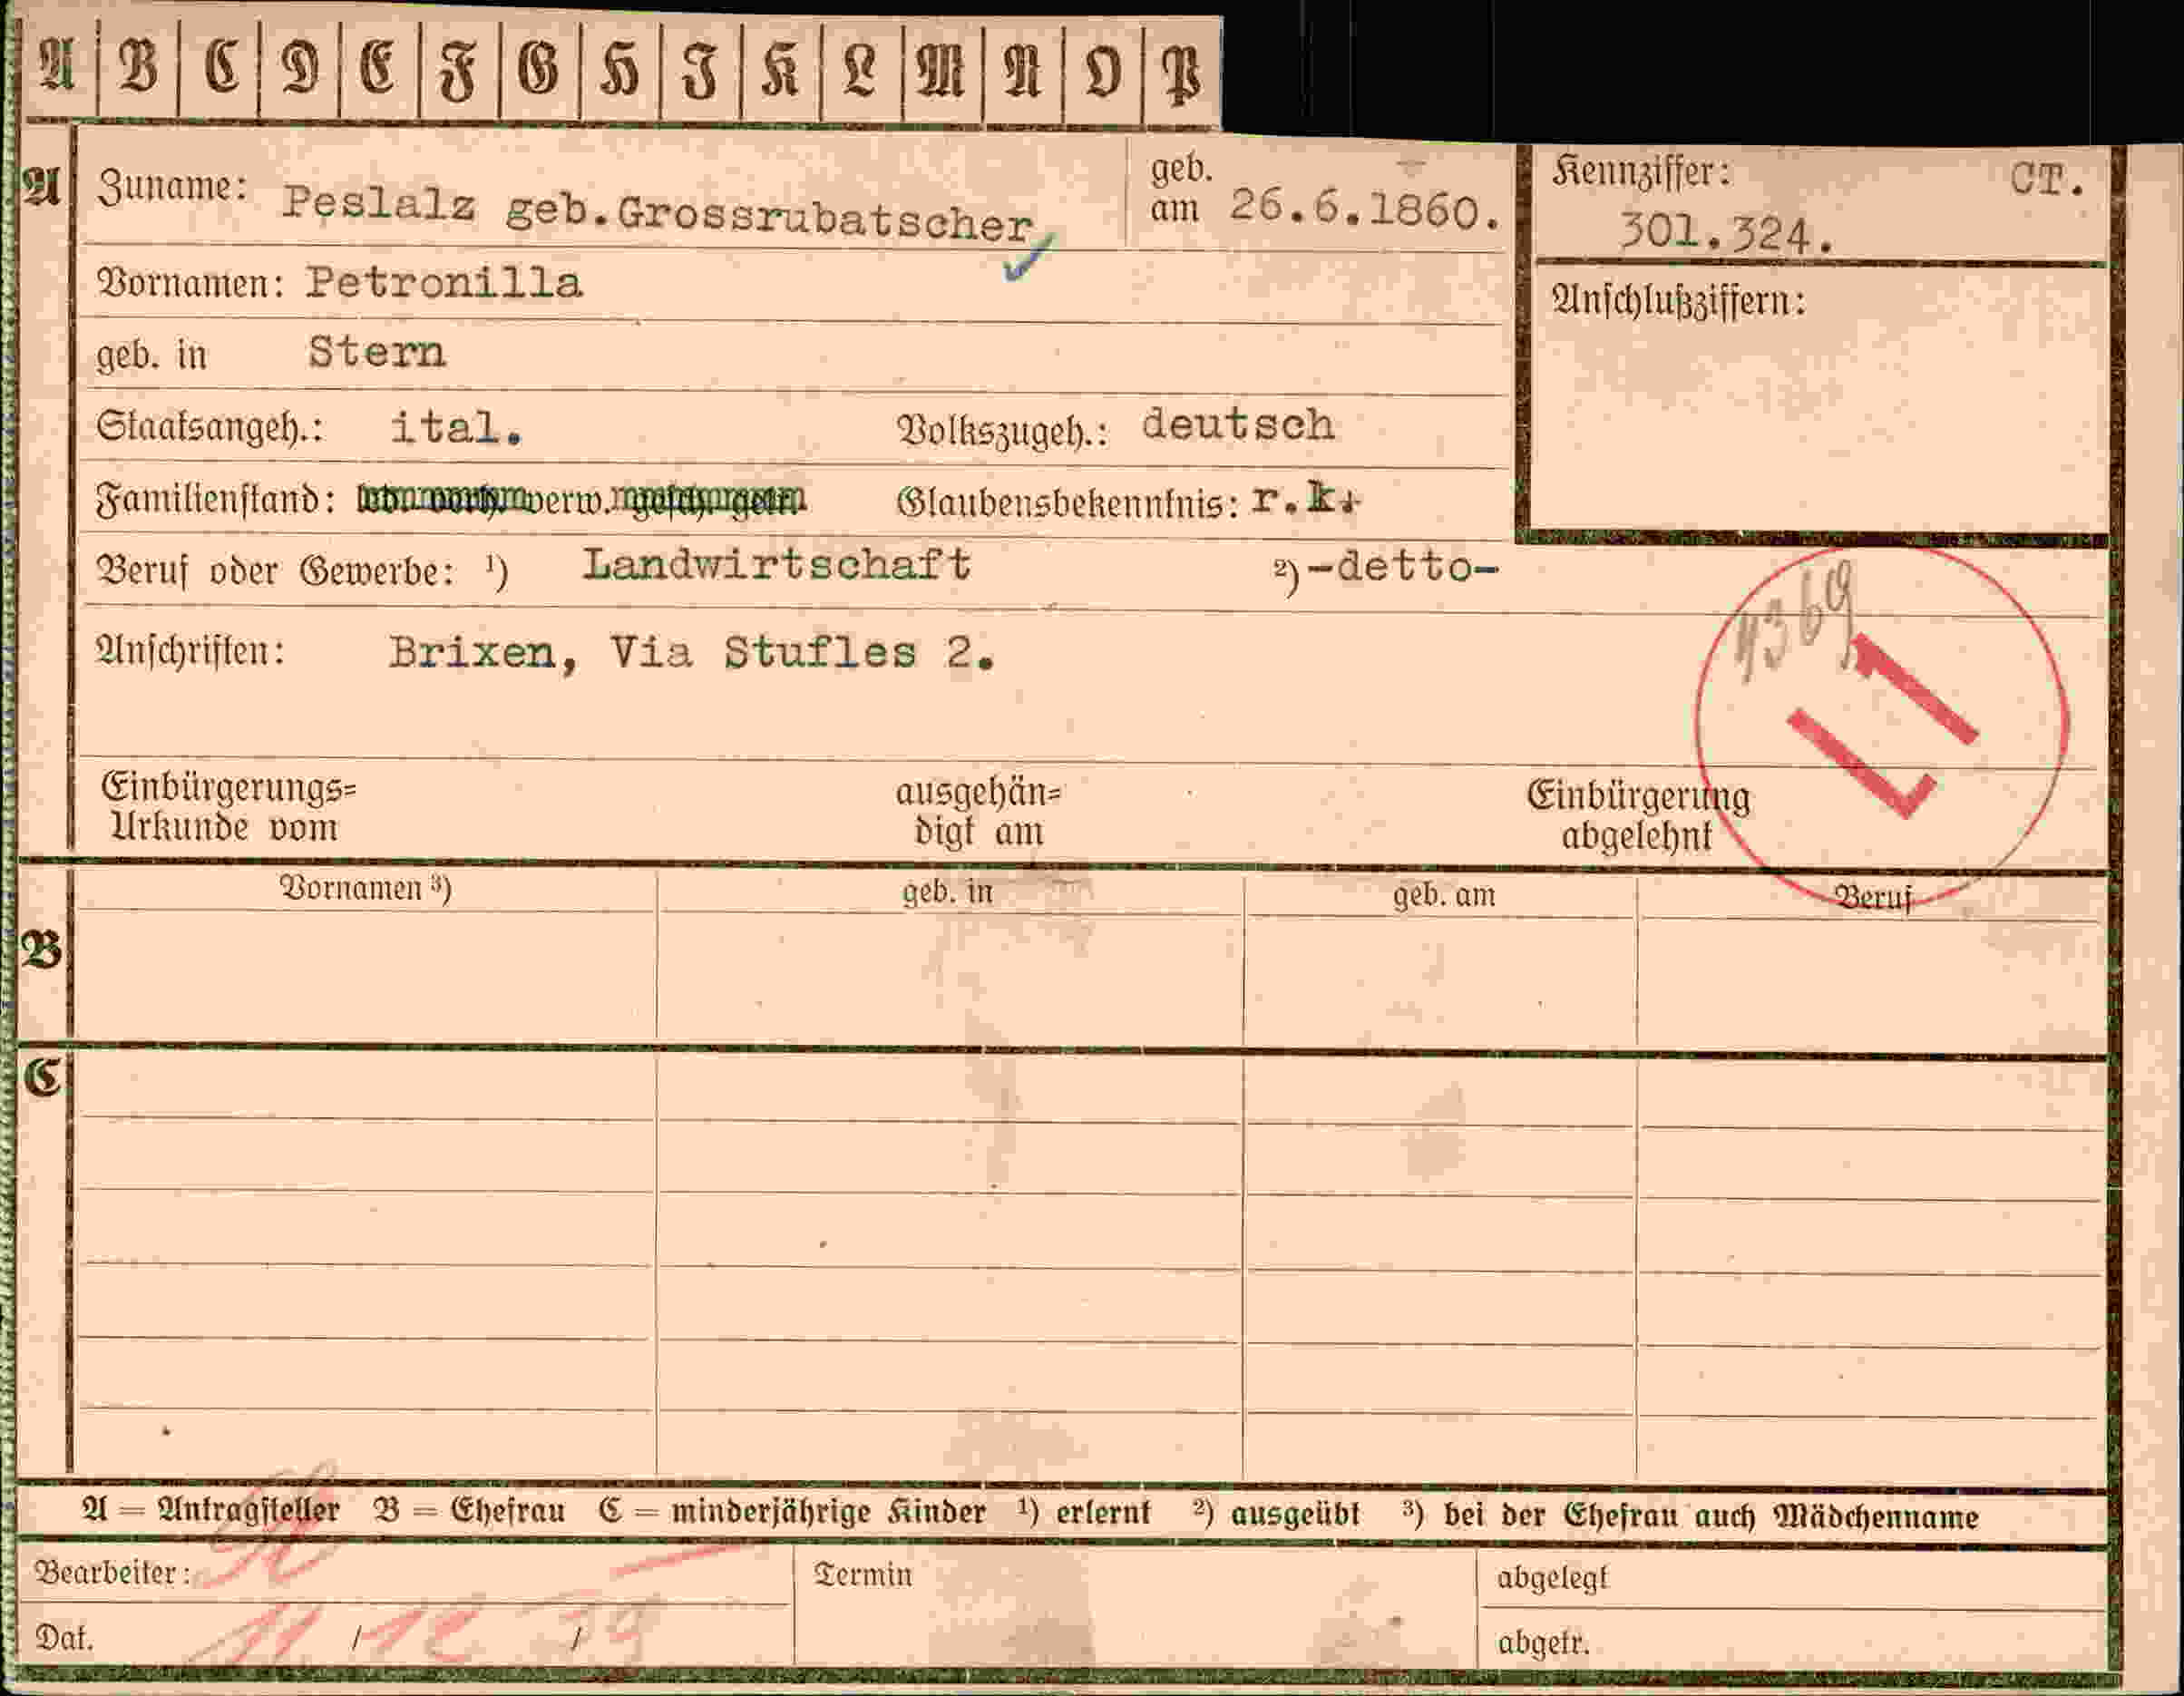 A B C D E F G H I K L M N O P
A Zuname: Peslalz geb.Grossrubatscher geb. am 26.6.1860.
Kennziffer: CT.
301.324.
Vornamen: Petronilla
Anschlußziffern:
geb. in Stern
Staatsangeh.: ital. Volkszugeh.: deutsch
Familienstand: verw. Glaubensbekenntnis: r.k.
Beruf oder Gewerbe: 1) Landwirtschaft 2) -detto-
4369
L1
Anschriften: Brixen, Via Stufles 2.
Einbürgerungs= ausgehän= Einbürgerung
Urkunde vom digt am abgelehnt
B Vornamen 3) geb. in geb. am Beruf
C
A = Antragsteller B = Ehefrau C = minderjährige Kinder 1) erlernt 2) ausgeübt 3) bei der Ehefrau auch Mädchenname
Bearbeiter: Termin abgelegt
Dat. 11 / 12 / 39 abgetr.